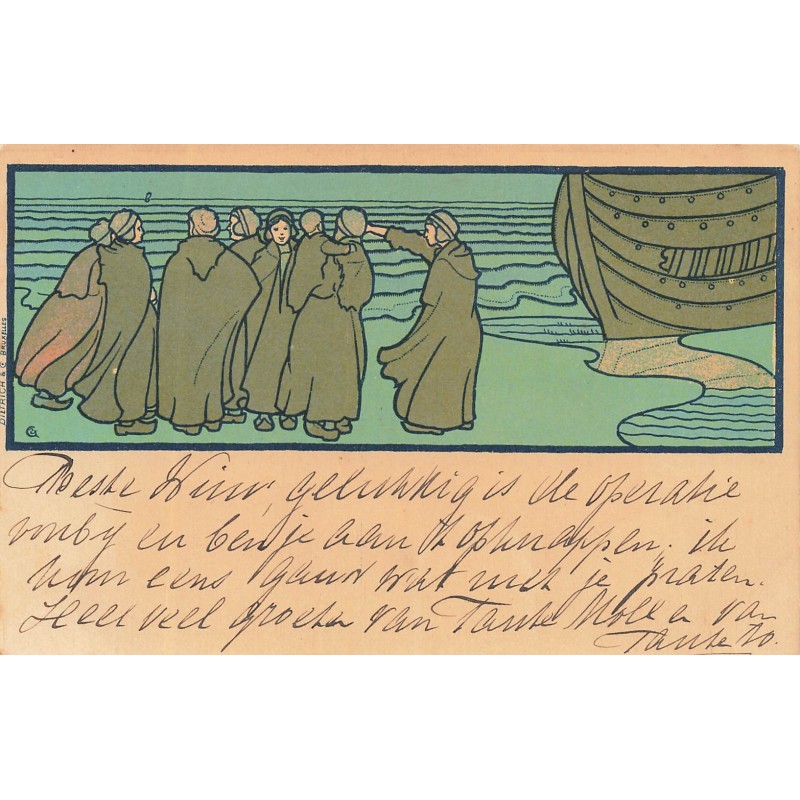 DIETRICH & Co BRUXELLES
CG
Beste Wim, gelukkig is de operatie
voorbij en ben je aan 't opknappen. ik
kom eens gauw wat met je praten.
Heel veel groeten van Tante Moll en van
Tante Jo.